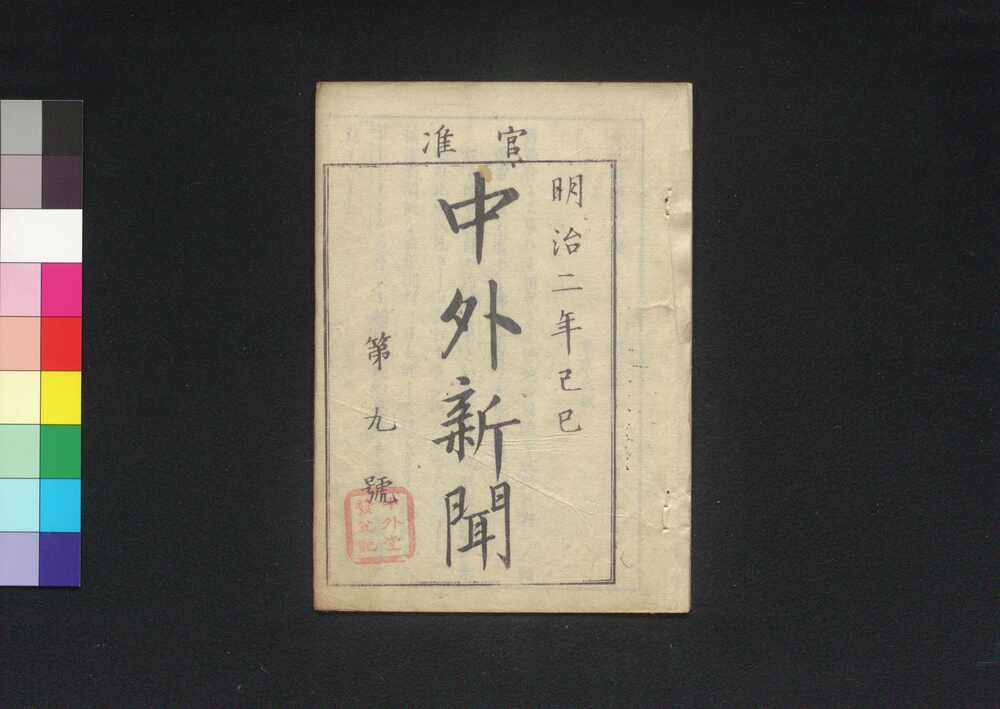 官准
明治二年己巳
中外新聞
第九號
中外堂
發兌記